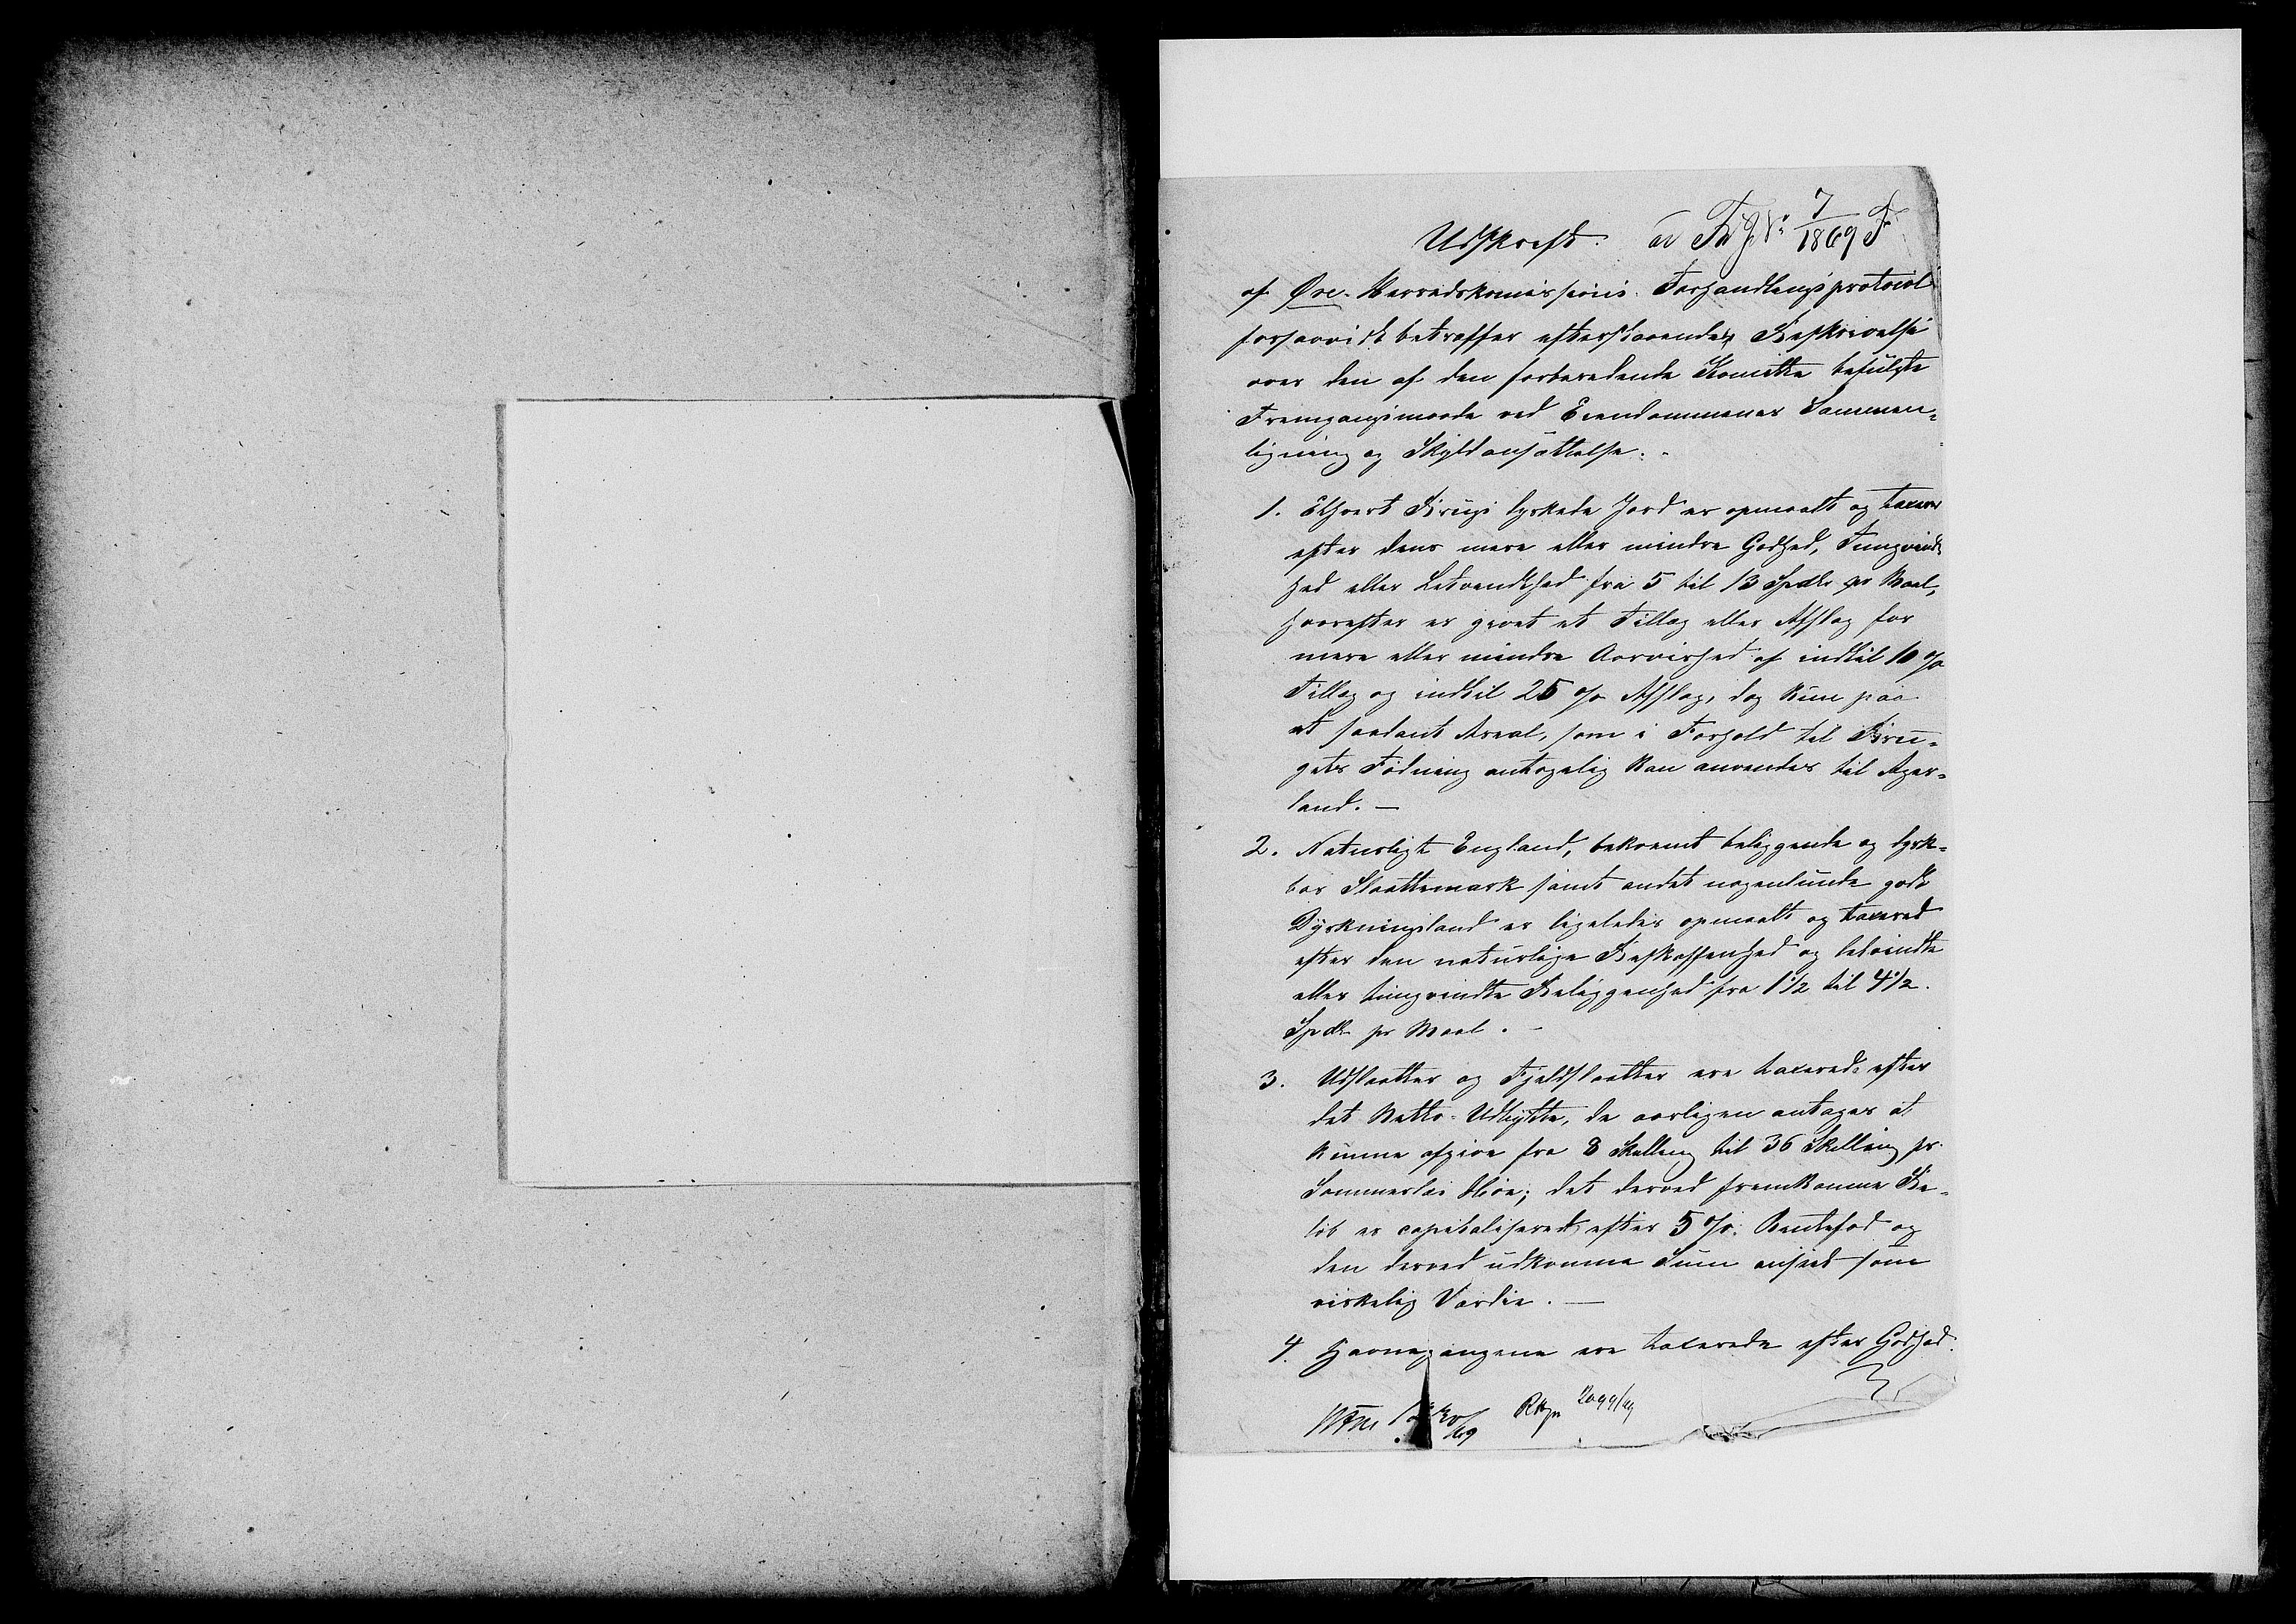 Udskrift. 7/1869 F
af Øre Herredskomissions Forhandlingsprotocol
forsaavidt betræffer efterstaaende Beskrivelse
over den af den forberedende Komitte befulgte
Fremgangsmaade ved Eiendommenes Sammen-
ligning og Skyldansættelse. -
1. Ethvert Brugs dyrkede Jord er opmaalt og taxeret
efter dens mere eller mindre Godhed, Tungvindt-
hed eller Letvindthed fra 5 til 13 Spdlr pr Maal,
hvorefter er givet et Tillæg eller Afslag for
mere eller mindre Aarvished af indtil 10 %
Tillæg og indtil 25 % Afslag, dog kun paa
et saadant Areal, som i Forhold til Bru-
gets Fødning antagelig kan anvendes til Ager-
land. —
2. Naturligt England, bekvemt beliggende og dyrk-
bar Slaattemark samt andet nogenlunde godt
Dyrkningsland er ligeledes opmaalt og taxered
efter den naturlige Beskaffenhed og letvindte
eller tungvindte Beliggenhed fra 1 1/2 til 4 1/2
Spdlr pr Maal. -
3. Udslaatter og Fjeldslaatter ere taxerede efter
det Netto-Udbytte, de aarligen antages at
kunne afgive fra 8 Skilling til 36 Skilling pr
Sommerlas Høe; det derved fremkomne Be-
løb er capitaliseret efter 5 %. Rentefod og
den derved udkomne Sum anseet som
virkelig Værdie. —
4. Havnegangene ere taxerede efter Godhed.